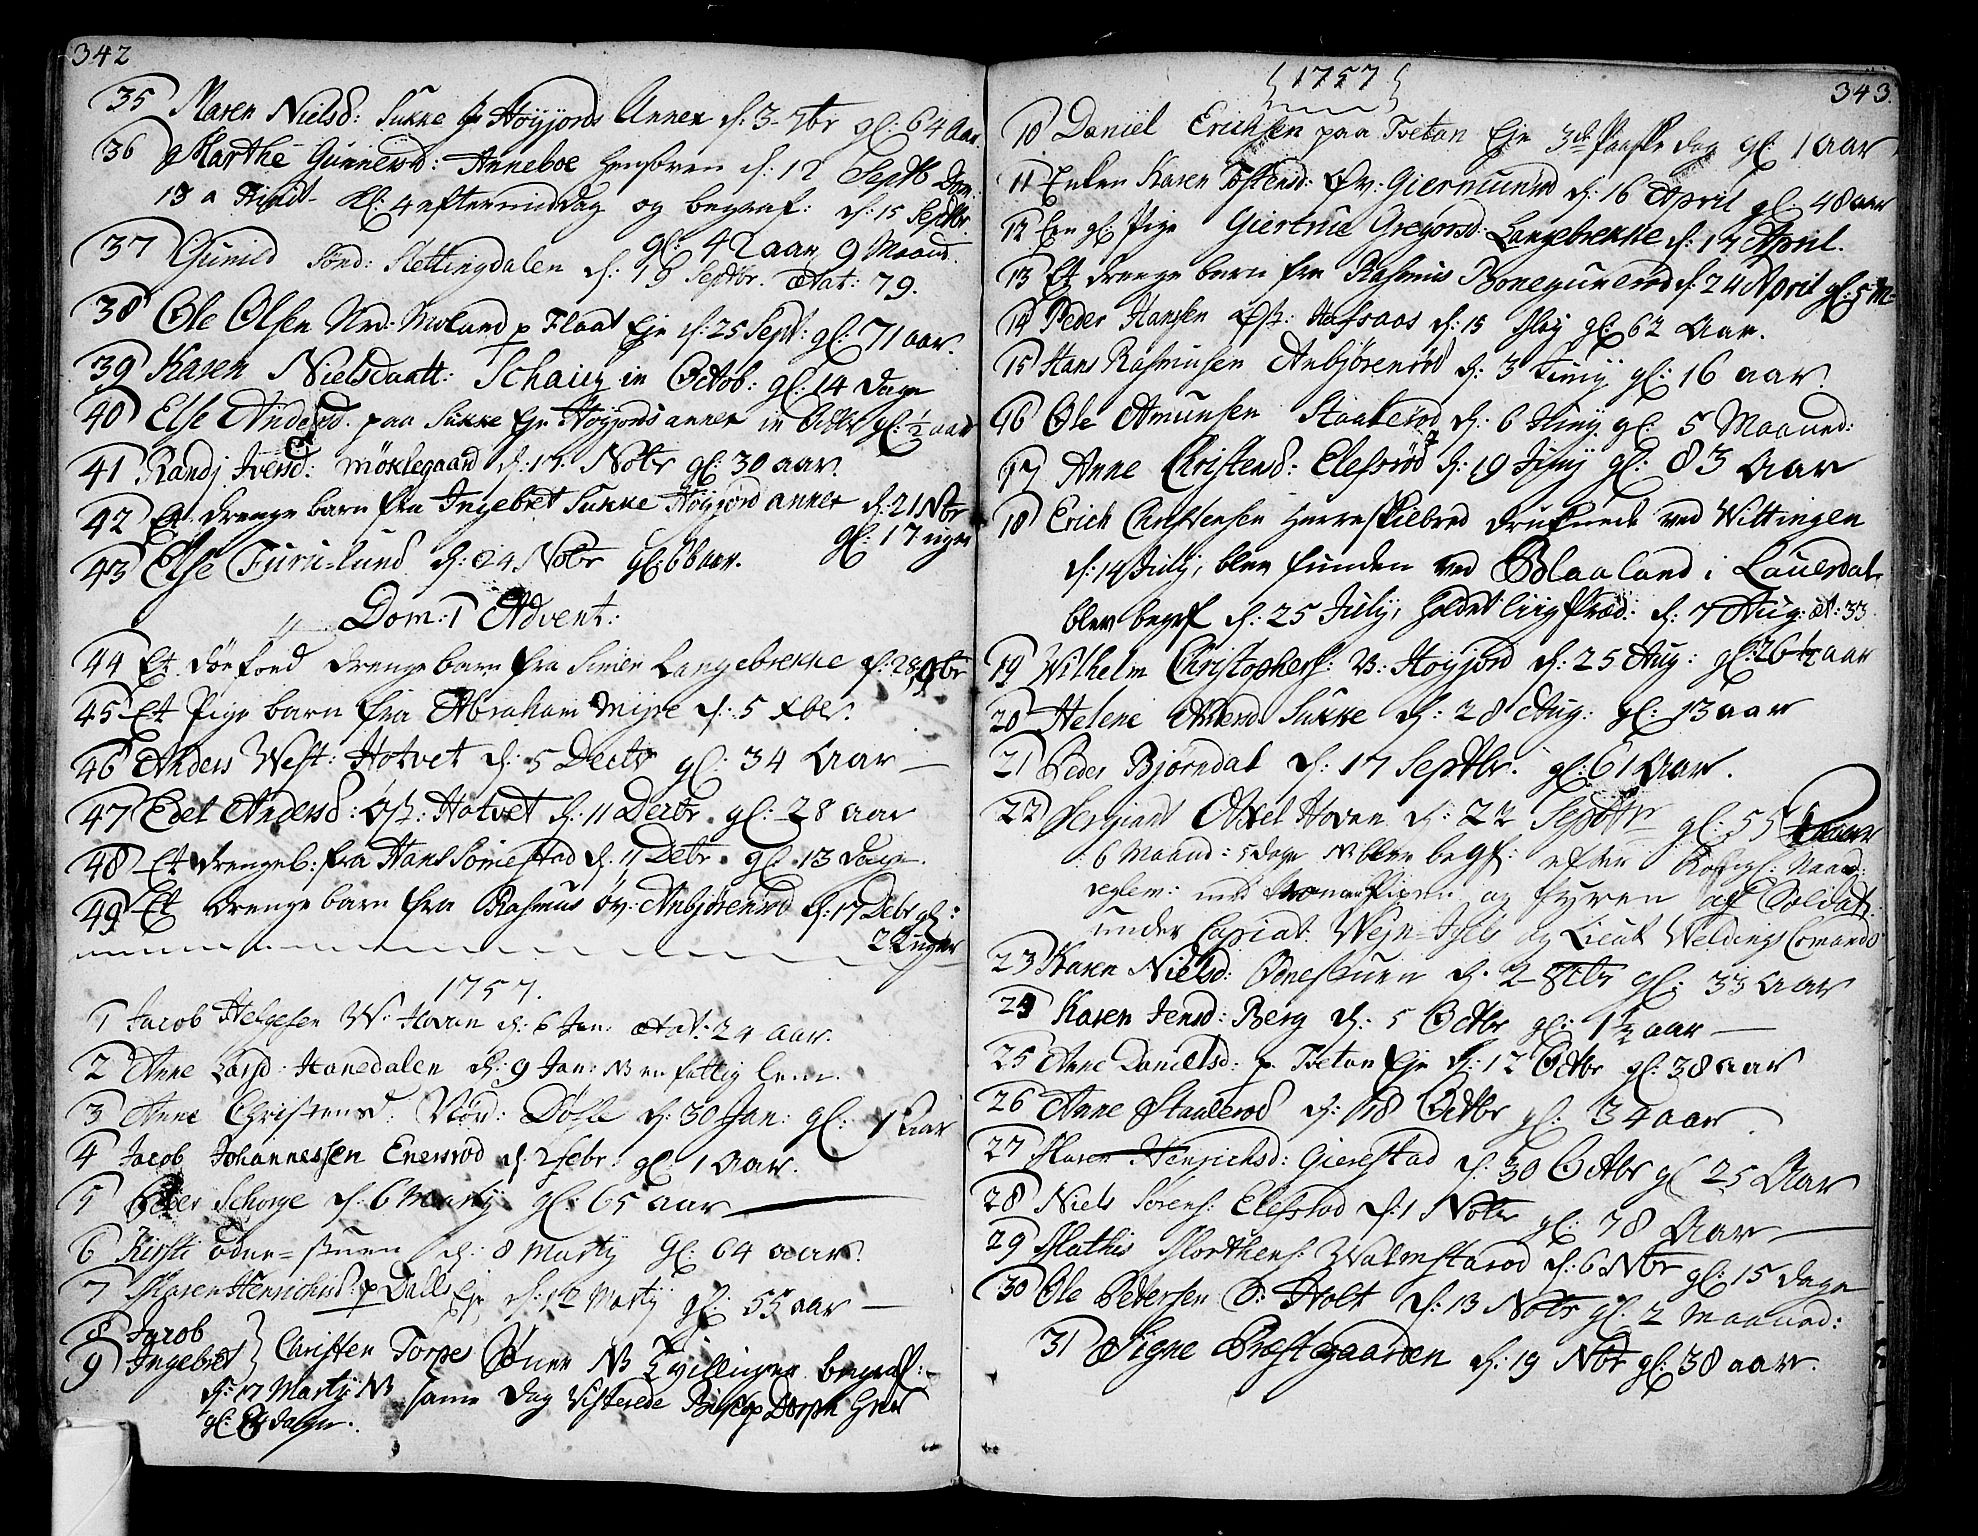 342
35 Maren Nielsd: Sukke p Høyjords Annex d: 3 7br gl: 64 Aar
36 Marthe Gunnersd: Anneboe hensoven d: 12 Septb Dom:
13 a Trinit Kl: 4 eftermiddag og begraf: d: 15 Septbr.
gl: 42 aar 9 Maand.
37 Gunild Sønd: Slettingdalen d: 19 Septbr. ætat: 79.
38 Ole Olsen Nrd: Moland p Flaat Eje d: 25 Sept: gl: 71 aar.
39 Karen Nielsdaatt: Schaug in Octob: gl: 14 dage
40 Else Andersd. paa Sukke Eje Høyjords annex in Octbr gl: ½ aar
41 Randj Iversd: Møklegaard d: 17. Notr gl: 30 aar.
42 Et drenge barn fra Ingebret Sukke Høyjord annex d: 21 Nbr
gl: 17 uger
43 Else Furu=lund d: 24 Nobr gl: 66 aar.
Dom: 1 Advent:
44 Et dødfød drenge barn fra Simen Langebrekke d: 28 9br
45 Et Pige barn fra Abraham Mipe d: 5 Xbr.
46 Anders West: Hotvet d: 5 Decbr gl: 34 Aar
47 Edel Andersd: Øst: Hotvet d: 11 Decbr. gl: 28 aar
48 Et drengeb: fra Hans Somestad d: 11 Debr. gl: 13 dage.
49 Et drenge barn fra Rasmus øv: Anbjørensrød d: 17 Debr gl:
2 Uger
1757.
1 Jacob Helgesen W: Hovan d: 6 Jan: ætat: 24 aar.
2 Anne Larsd: Hanedalen d: 9 Jan: NB en fattig lem.
3 Anne Christensd: Nör: Døhle d: 30 Jan: gl: 1 Aar
4 Jacob Johannessen Enersrød d: 2 febr: gl: 1 Aar.
5 Peder Schorge d: 6 Marty gl: 65 aar
6 Kirsti ödne=stuen d: 8 Marty gl: 64 aar.
7 Maren Henrichsd: p Dalls Eje d: 12 Marty gl: 55 aar
8 Jacob
9 Ingebret } Christen Torpes Søner NB Tvillinger begraf:
d: 17 Marty NB samme dag visterede Biscop Dorph her
gl: dage.
{1757}
343.
10 Daniel Erichsen paa Tvetan Eje 3de Paaske dag gl: 1 aar
11 Enken Karen Tostensd: Øv: Giermund d: 16 April gl: 48 aar
12 Een gl: Pige Giertrud Gregorsd: Langebrekke d: 17 April.
13 Et drenge barn fra Rasmus Bonegunerød d: 24 April gl: 5 M:
14 Peder Hansen Øst: Hafsaas d: 15 May gl: 62 Aar.
15 Hans Rasmusen Anbjørenrød d: 3 Juny gl: 16 aar.
16 Ole Amunsen Staalerød d: 6 Juny gl: 5 Maaned:
17 Anne Christensd: Elefsrød d: 19 Juny gl: 83 Aar
18 Erich Christensen Herreskilbred druknede ved Wittingen
d: 14 July, blev funden ved Blaaland i Lauerdal
blev begrf d: 25 July, holdet liigpræd: d: 7 Aug: æt: 33
19 Wilhelm Christophers: W: Høyjord d: 25 Aug: gl: 26 ½ aar
20 Helene Sukke d: 28 Aug: gl: 13 aar
21 Peder Bjørndal d: 17 Septbr. gl: 61 Aar.
22 Sergiant Axel Hovan d: 22 Septbr gl: 55 aar
6 Maand: 5 dage NB blev begf: efter
reglem: med og fyren af Soldat:
under Capiat. Wejn=Jylls og Lieut Weldings Comando
23 Karen Nielsd: Ödnestuen d. 2 8tbr gl: 33 Aar
24 Karen Jensd: Berg d: 5 Octbr gl: 1½ aar
25 Anne Danielsd: p Tvetan Eje d: 12 Octbr gl: 38 aar
26 Anne Staalerød d: 18 Octbr gl: 34 aar
27 Maren Henrichsd: Gierestad d. 30 Octbr gl 25 Aar
28 Niels Sørens: Elefstad d: 1 Notr gl: 78 Aar
29 Mathis Morthens: Walmstarød d: 6 Nbr gl: 15 dage
30 Ole Petersen S: Holt d: 13 Notr gl: 2 Maaned:
31 Signe Præstegaarden d: 19 Nbr gl: 38 aar.